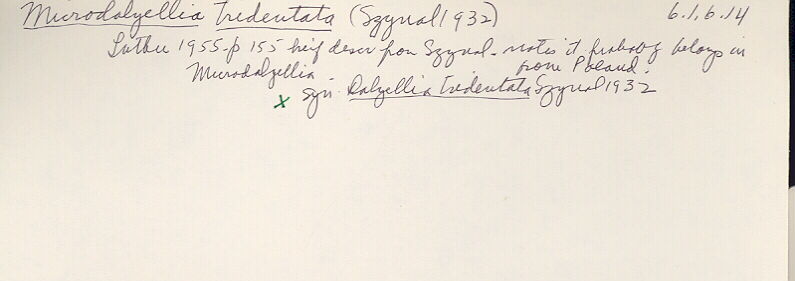 Microdalyellia tridentata (Szynal 1932) 6.1.6.14
Luther 1955-p 155 brief descr from Szynal - notes it probably belongs in
Microdalyellia. from Poland.
x syn. Dalyellia tridentata Szynal 1932